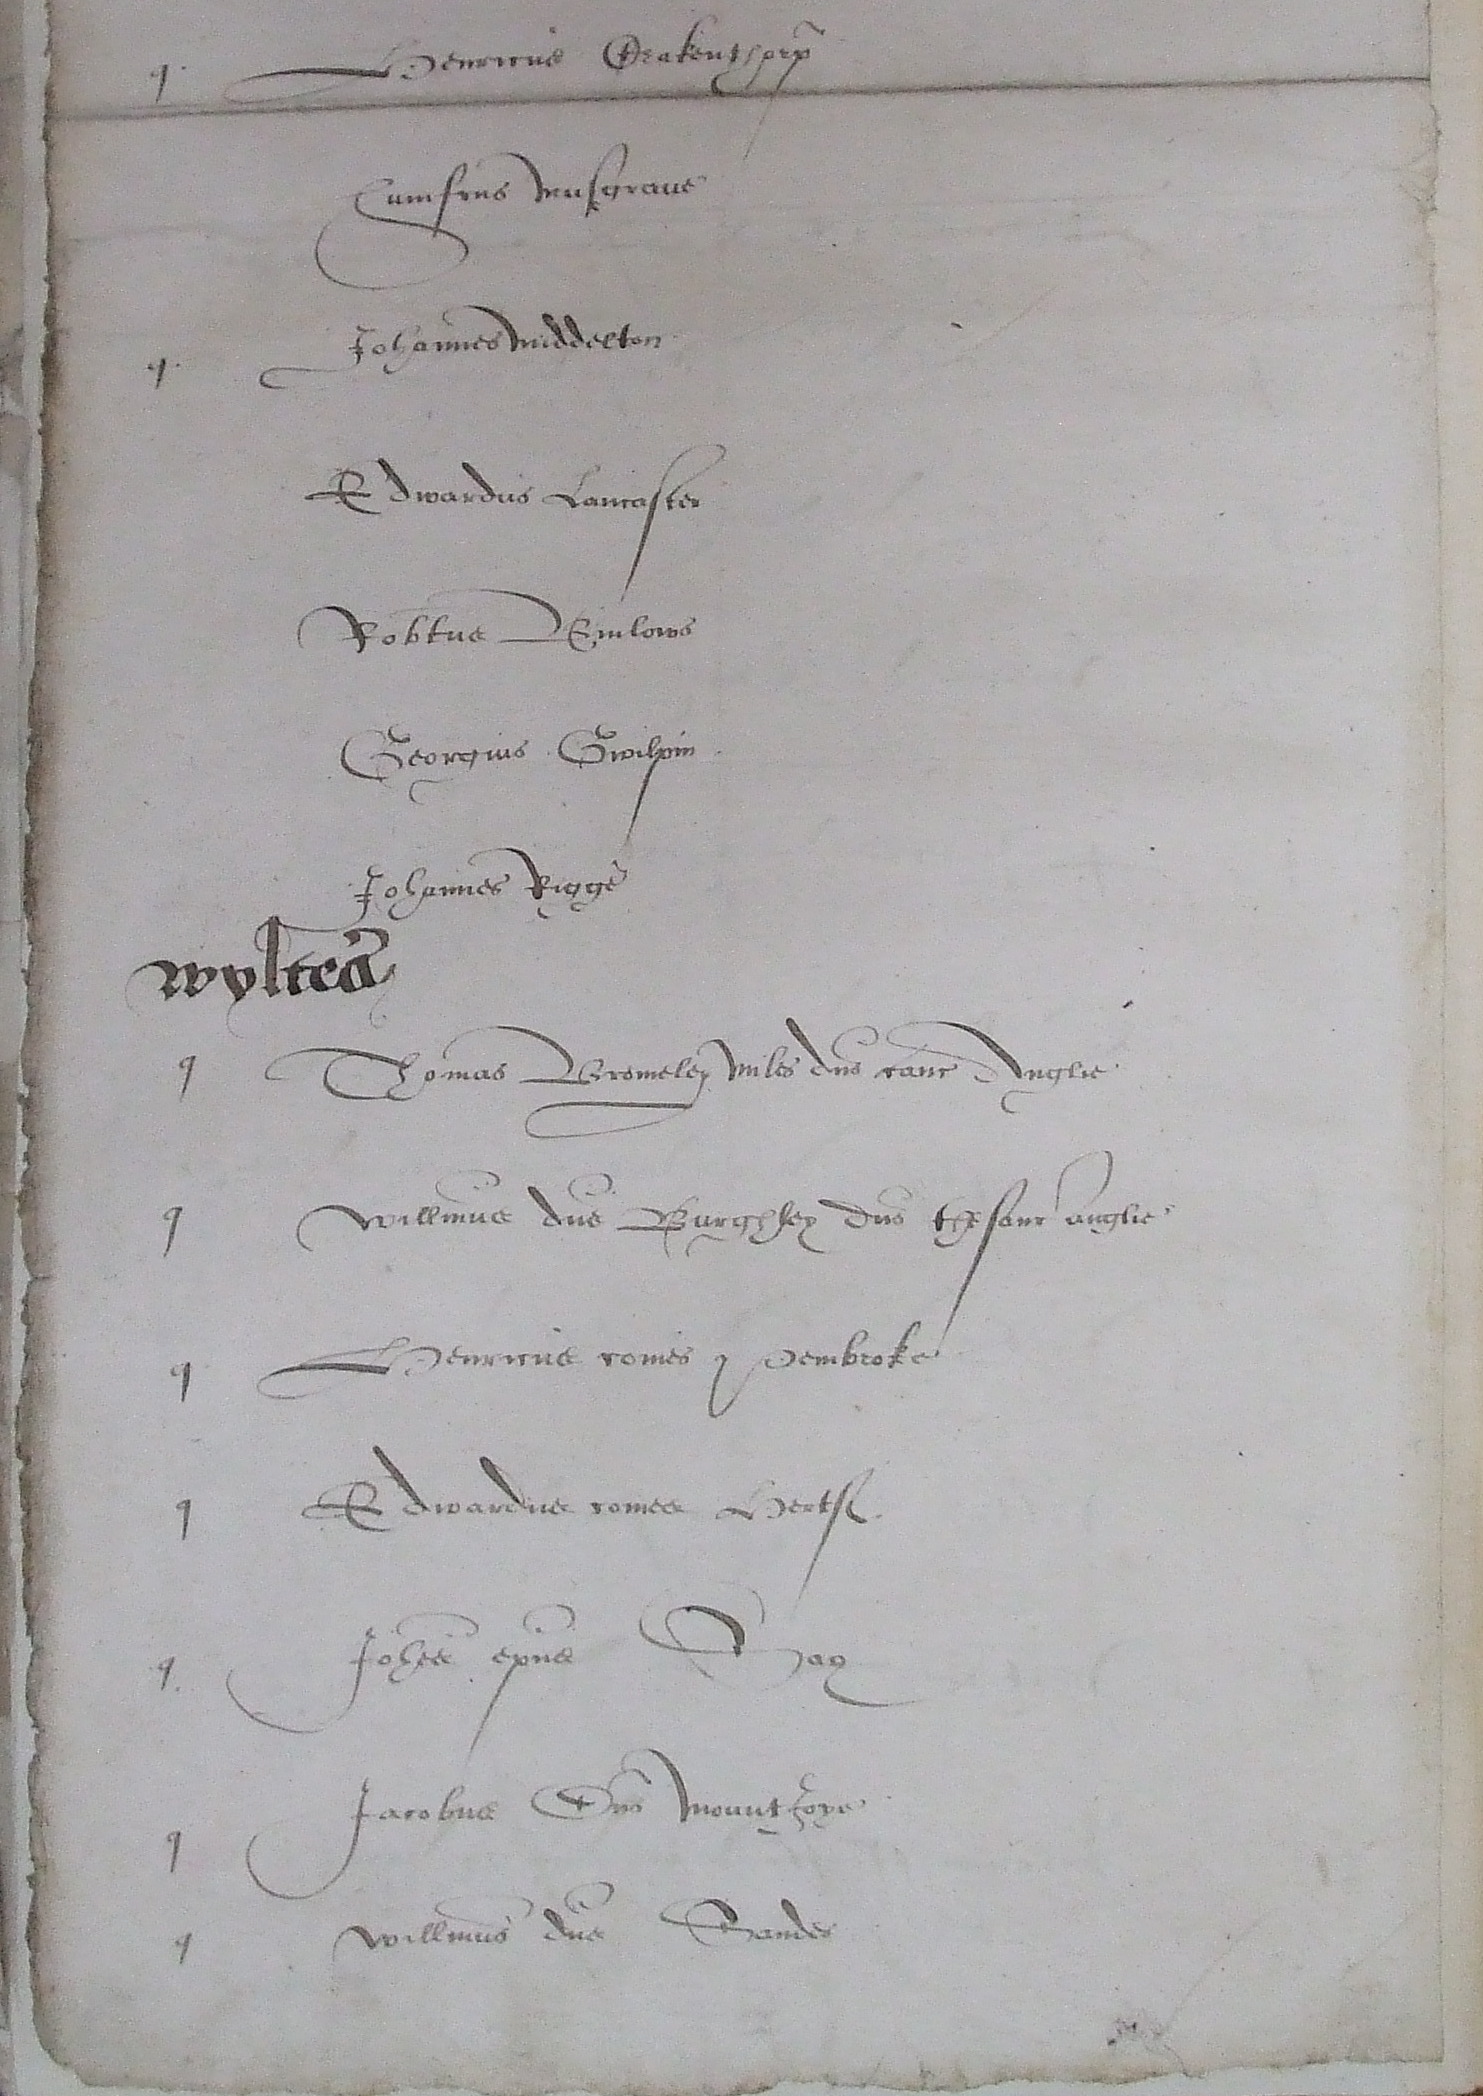 q Henricus Crakenthorp
Humfrus Musgrave
q Johannes Middelton
Edwardus Lancaster
Robtus Byndlows
Georgius Gwilpin
Johannes Rigge
Wyltes
q Thomas Bromeley Miles dns canc Anglie
q Willmus dns Burghley dns thesaur anglie
q Henricus comes Pembroke
q Edwardus comes Hertf
q Johes epus Sar
q Jacobus Dns Mountjoye
q Willmus dns Sandes